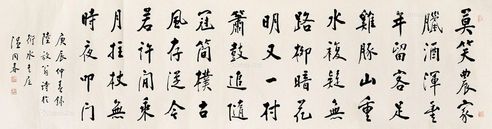 莫笑農家
臘酒渾豐
年留客足
雞豚山重
水複疑無
路柳暗花
明又一村
簫鼓追隨
冠簡樸古
風存從今
若許閒乘
月拄杖無
時夜叩门
庚辰仲夏錄
陸放翁诗於
衍水之
温同春